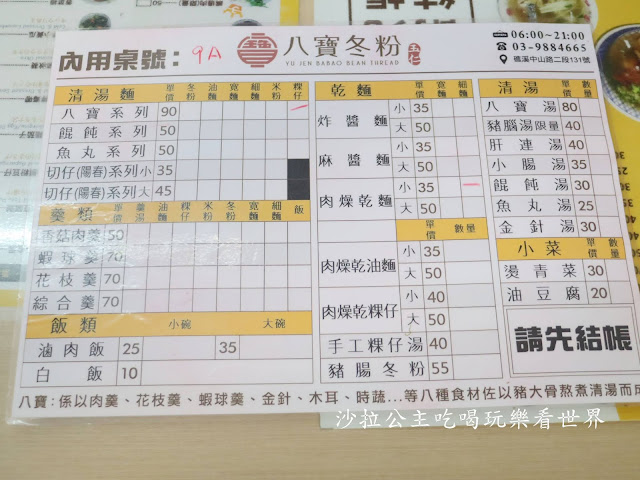 內用桌號： 9A
八寶冬粉 玉仁
YU JEN BABAO BEAN THREAD
06:00~21:00
03-9884665
礁溪中山路二段131號
清湯麵 單價 冬粉 油麵 寬麵 細麵 米粉 粿仔
八寶系列 90
餛飩系列 50
魚丸系列 50
切仔(陽春)系列 小 35
切仔(陽春)系列 大 45
羹類 單價 羹湯 油麵 粿仔 米粉 冬粉 寬麵 細麵 飯
香菇肉羹 50
蝦球羹 70
花枝羹 70
綜合羹 70
飯類 小碗 大碗
滷肉飯 25 35
白飯 10
乾麵 單價 油麵 寬麵 細麵 米粉
炸醬麵 小 35
大 50
麻醬麵 小 35
大 50
肉燥乾麵 小 35
大 50
單價 數量
肉燥乾油麵 小 35
大 50
肉燥乾粿仔 小 40
大 50
手工粿仔湯 40
豬腸冬粉 55
清湯 單價 數量
八寶湯 80
豬腦湯 限量 40
肝連湯 40
小腸湯 35
餛飩湯 30
魚丸湯 25
金針湯 30
小菜 單價 數量
燙青菜 30
油豆腐 20
請先結帳
八寶：係以肉羹、花枝羹、蝦球羹、金針、木耳、時蔬...等八種食材佐以豬大骨熬煮清湯而成
沙拉公主吃喝玩樂看世界